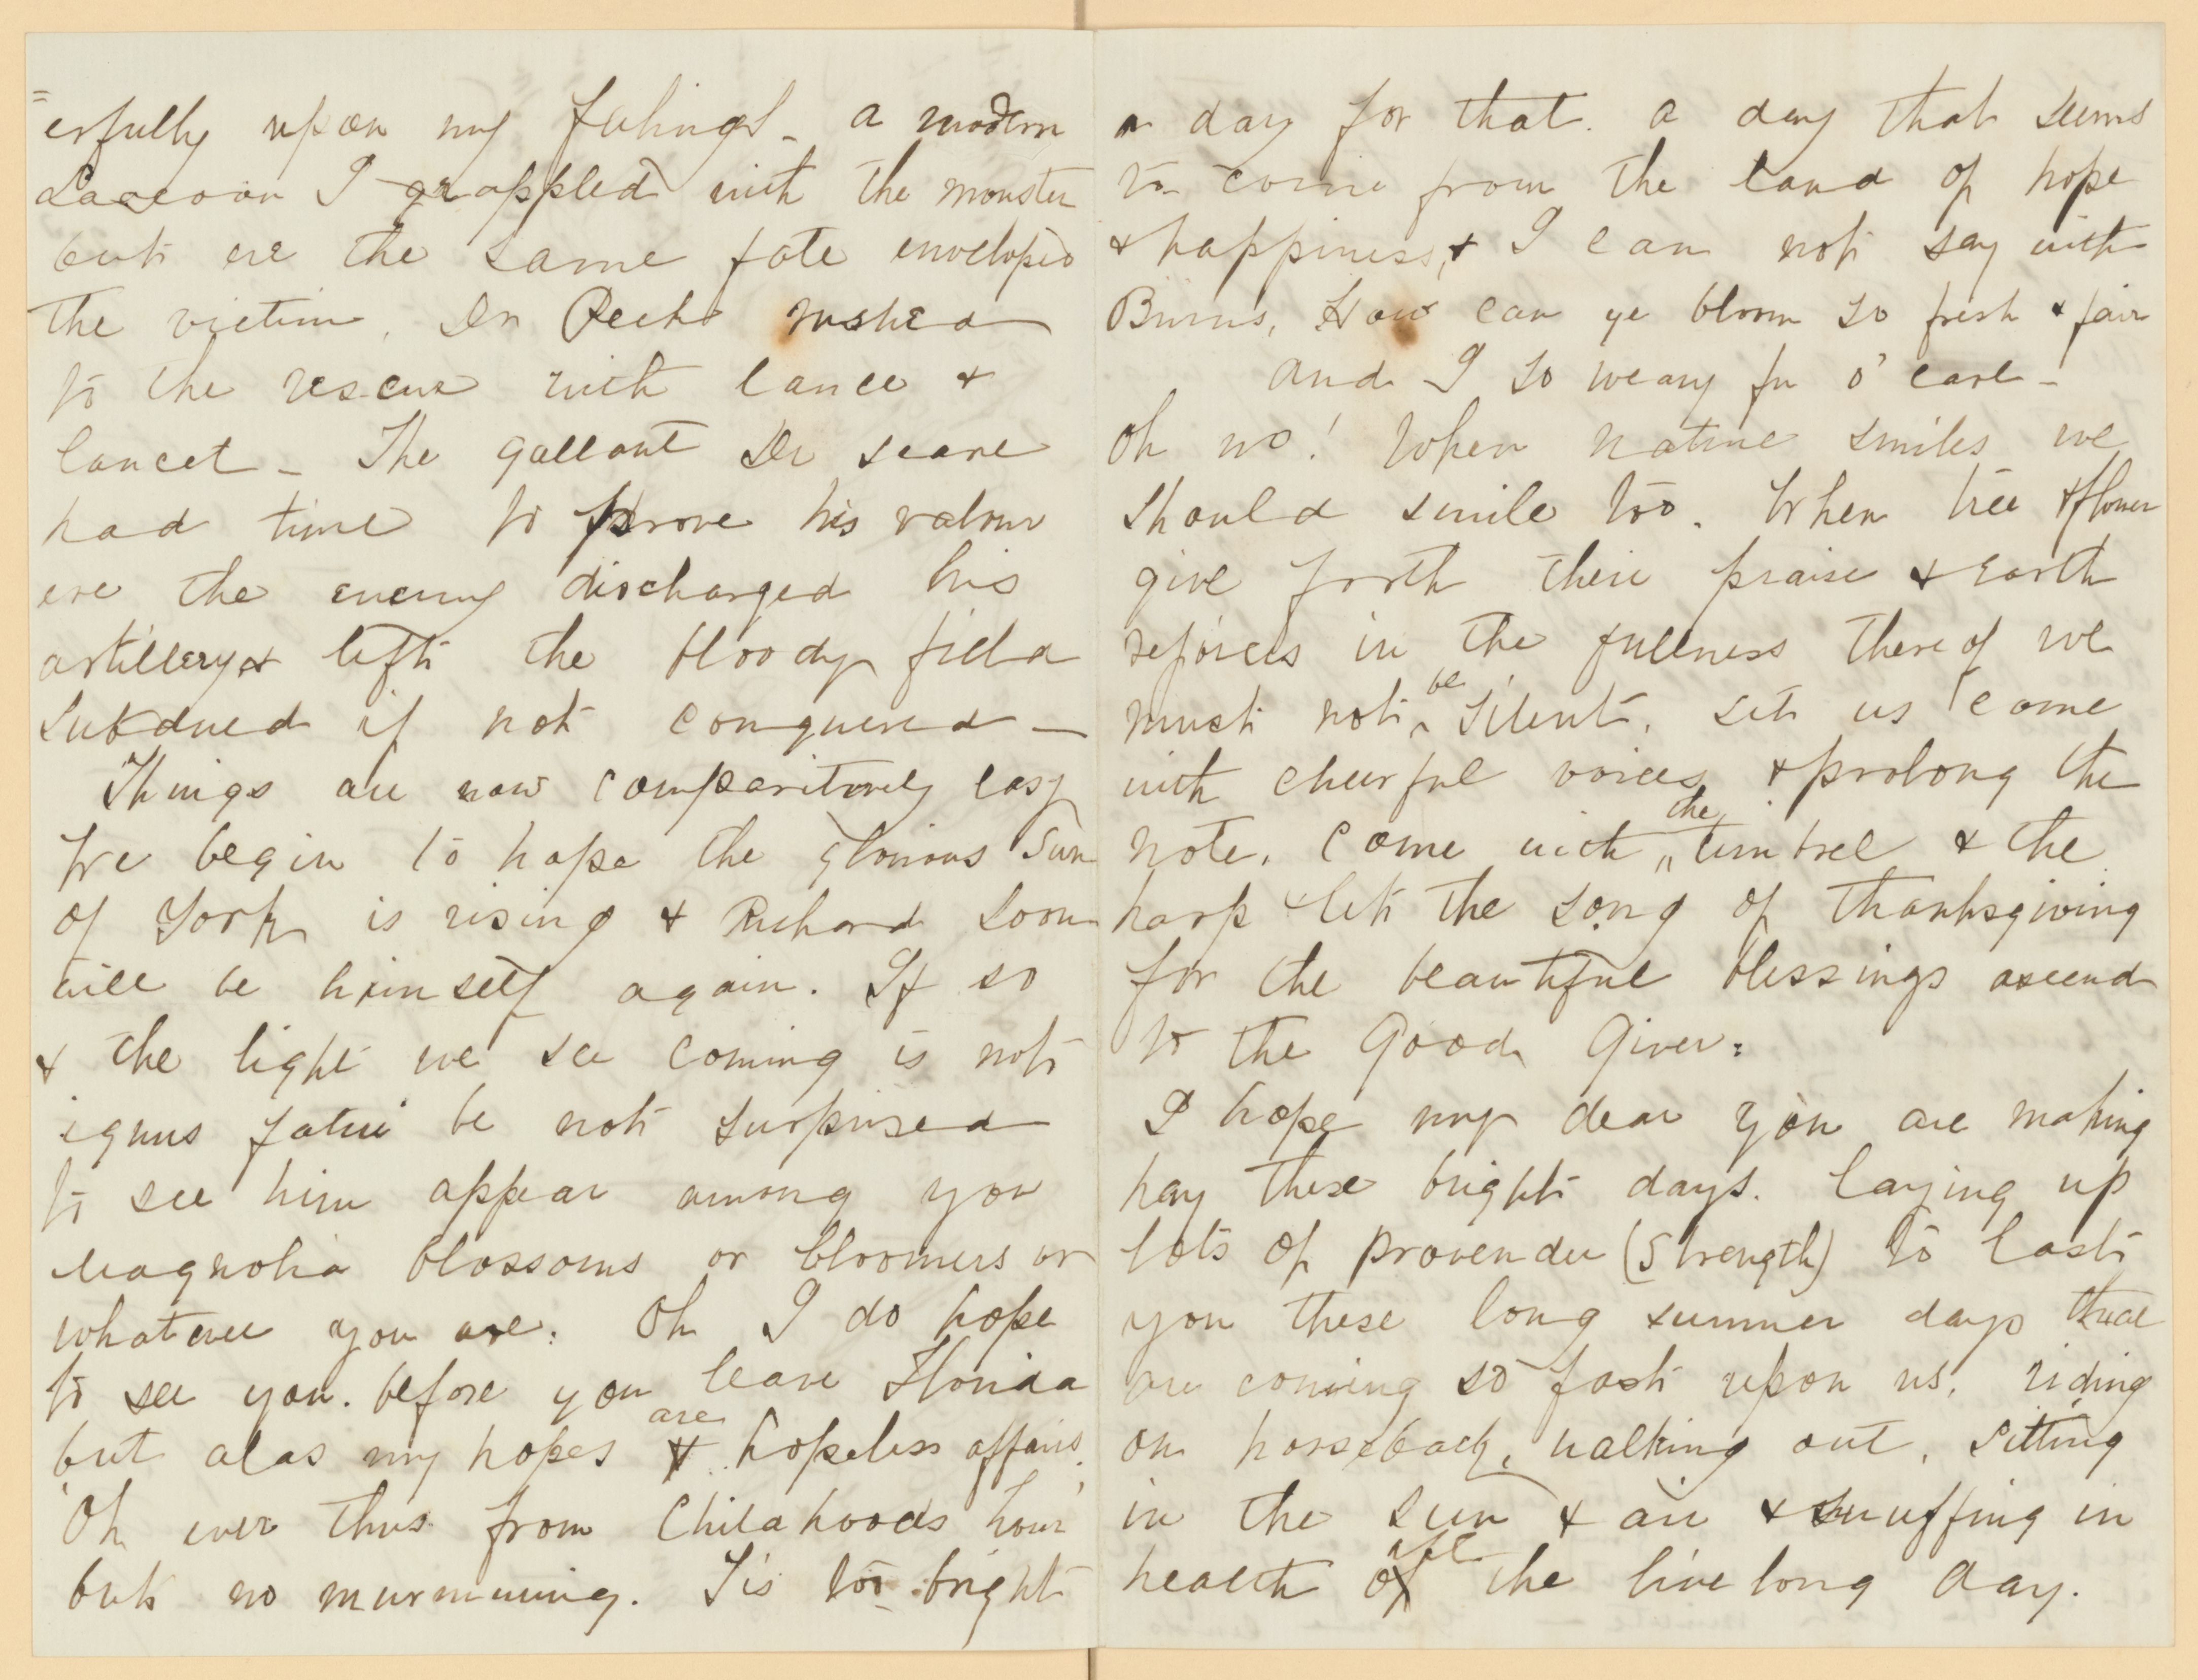 =erfully upon my feelings - a modern
Laocoon I grappled with the monster
but ere the same fate enveloped
the victim, Dr Peck rushed
to the rescue with lance &
lancet - The gallant Dr scare
had time to prove his valour
ere the enemy discharged his
artillery & left the bloody field
subdued if not conquered -
Things are now comparitively easy
We begin to hope the glorious Sun
of York is rising & Richard soon
will be himself again. If so
& the light we see coming is not
ignus fatui be not surprised
to see him appear among you
magnolia blossoms or bloomers or
whatever you are. Oh I do hope
to see you before you leave Florida
are
but alas my hopes & hopeless affairs.
'Oh ever thus from Childhoods hour'
but no murmuring. Tis too bright
a day for that. a day that seems
to come from the land of hope
& happiness, & I can not say with
Burns, How can ye bloom so fresh & fair
and I so weary fu o' care -
Oh no! When nature smiles we
should smile too. When tree & flower
give forth their praise & earth
rejoices in the fullness thereof we
be
must not ^ silent. Let us come
with cheerful voices & prolong the
the
note. Come with " timbrel & the
harp & let the song of thanksgiving
for the beautiful blessings ascend
to the Good Giver.
I hope my dear you are making
hay these bright days. laying up
lots of provender (Strength) to last
you these long summer days that
are coming so fast upon us, riding
on horseback, walking out, sitting
in the sun & air & snuffing in
all
health of the live long day.